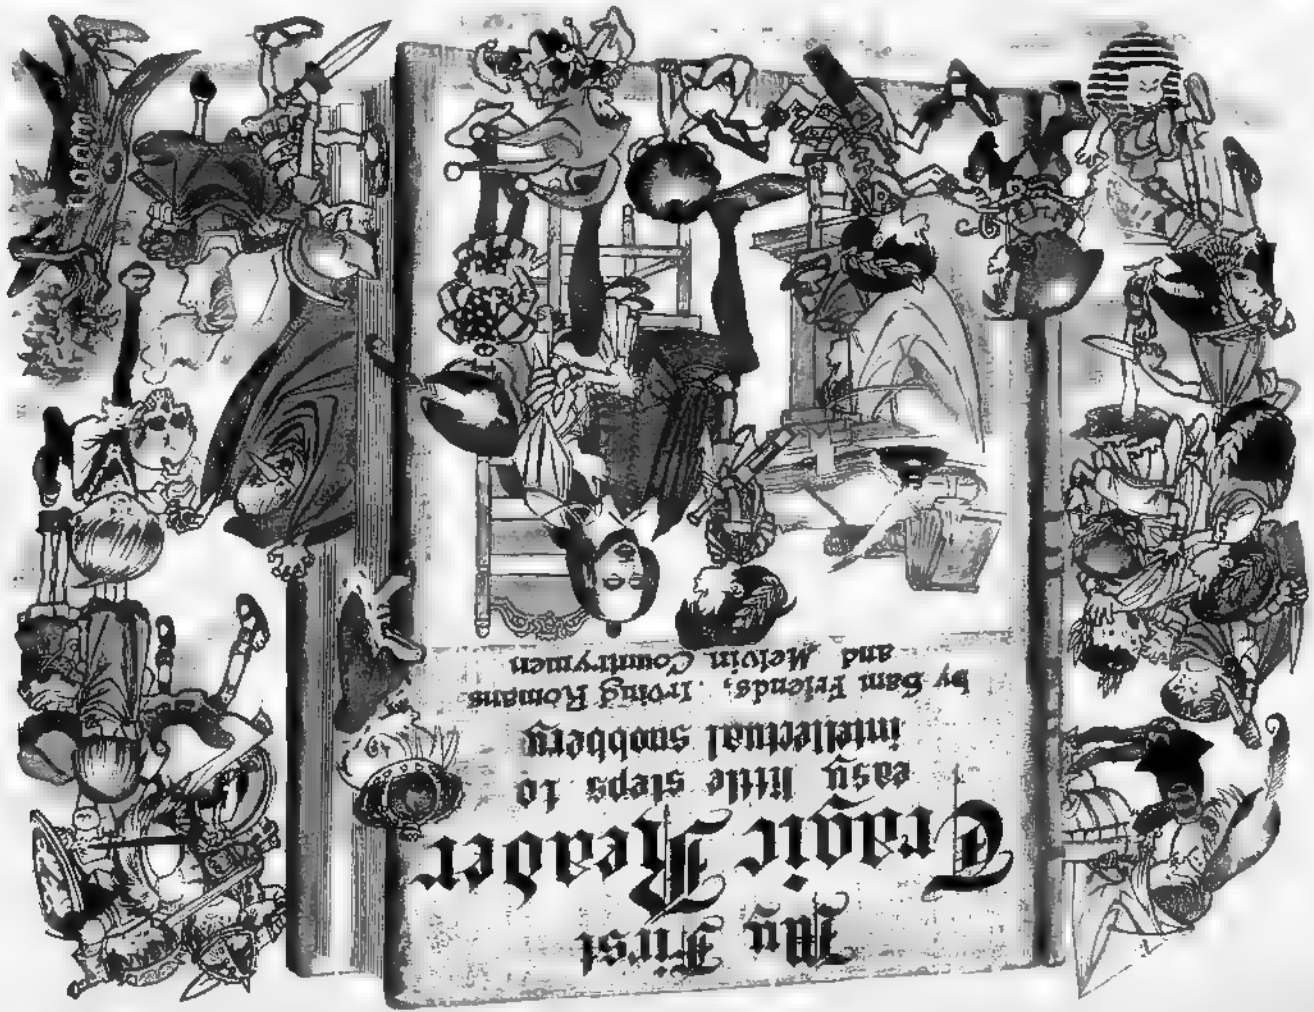 My First
Tragic Reader
easy little steps to
intellectual snobbery
by Sam Friends, Irving Romans
and Melvin Countrymen